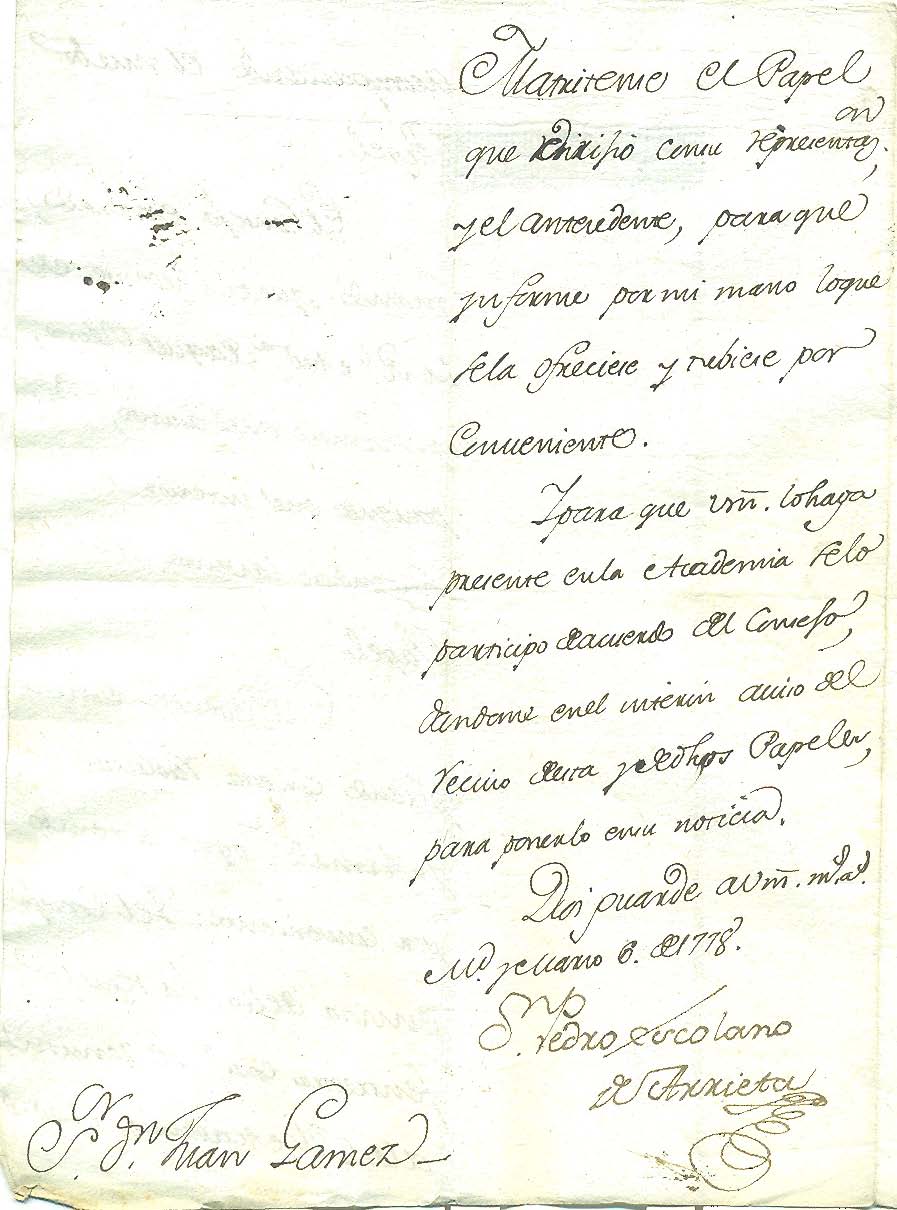 Matritense el Papel
que dirisió con su representaz.on
y el antecedente, para que
ynforme por mi mano loque
sela ofreciese y tubiese por
Conveniente.
Ypara que Vm̃. lohaga
presente enla Academia selo
participo deacuerdo del Consejo,
dandome enel interin aviso del
recivo desta y dedhos Papeles,
para ponerlo ensu noticia.
Dios guarde a Vm̃. m.s a.s
M.d y Marzo 6. de 1778.
D.n Pedro Escolano
de Arrieta
S.r D.n Juan Gamez